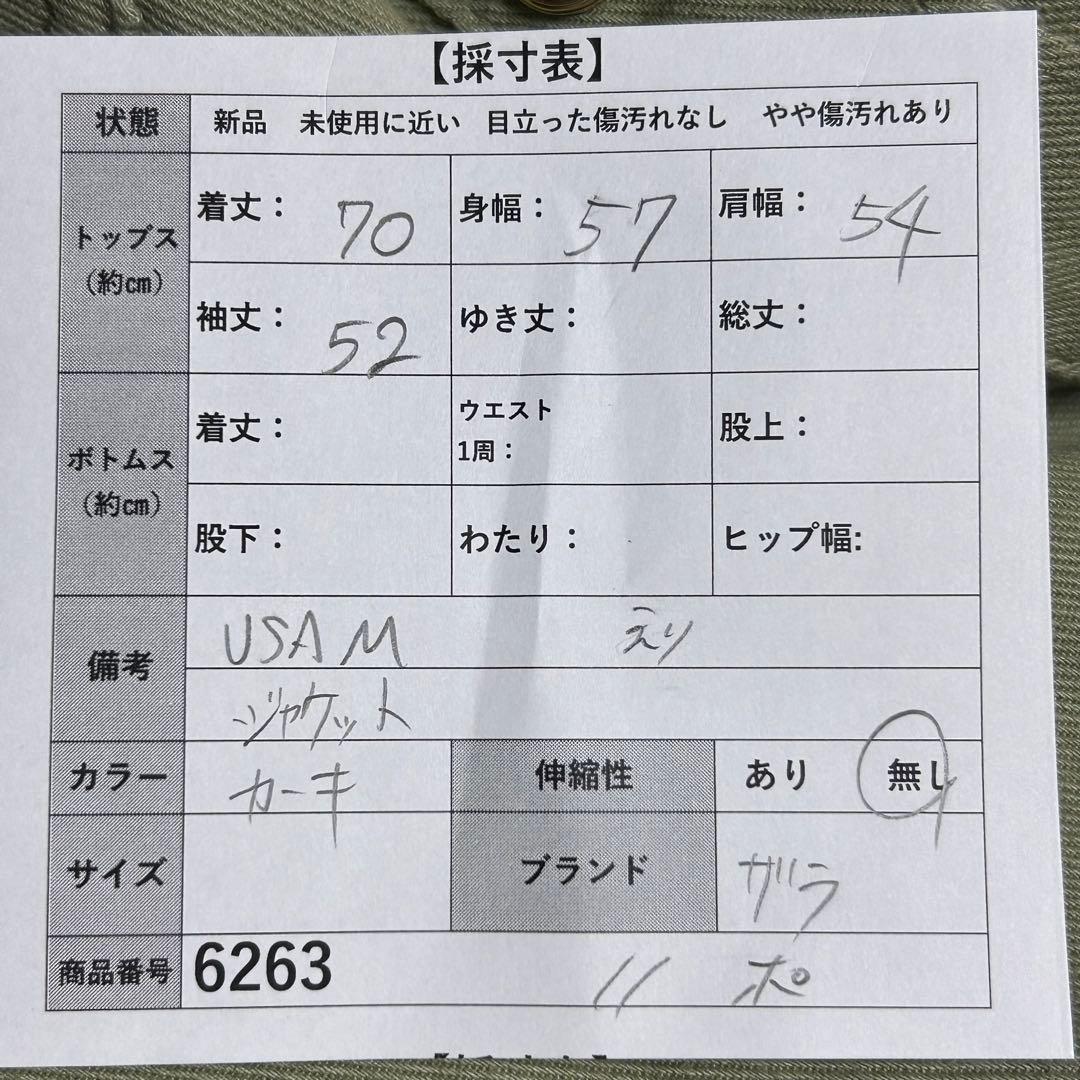 【採寸表】
状態 新品 未使用に近い 目立った傷汚れなし やや傷汚れあり
トップス (約cm)
着丈： 70 身幅： 57 肩幅： 54
袖丈： 52 ゆき丈： 総丈：
ボトムス (約cm)
着丈： ウエスト 1周： 股上：
股下： わたり： ヒップ幅:
備考 USA M えり
ジャケット
カラー カーキ 伸縮性 あり 無し
サイズ ブランド ザラ
商品番号 6263 11 ポ